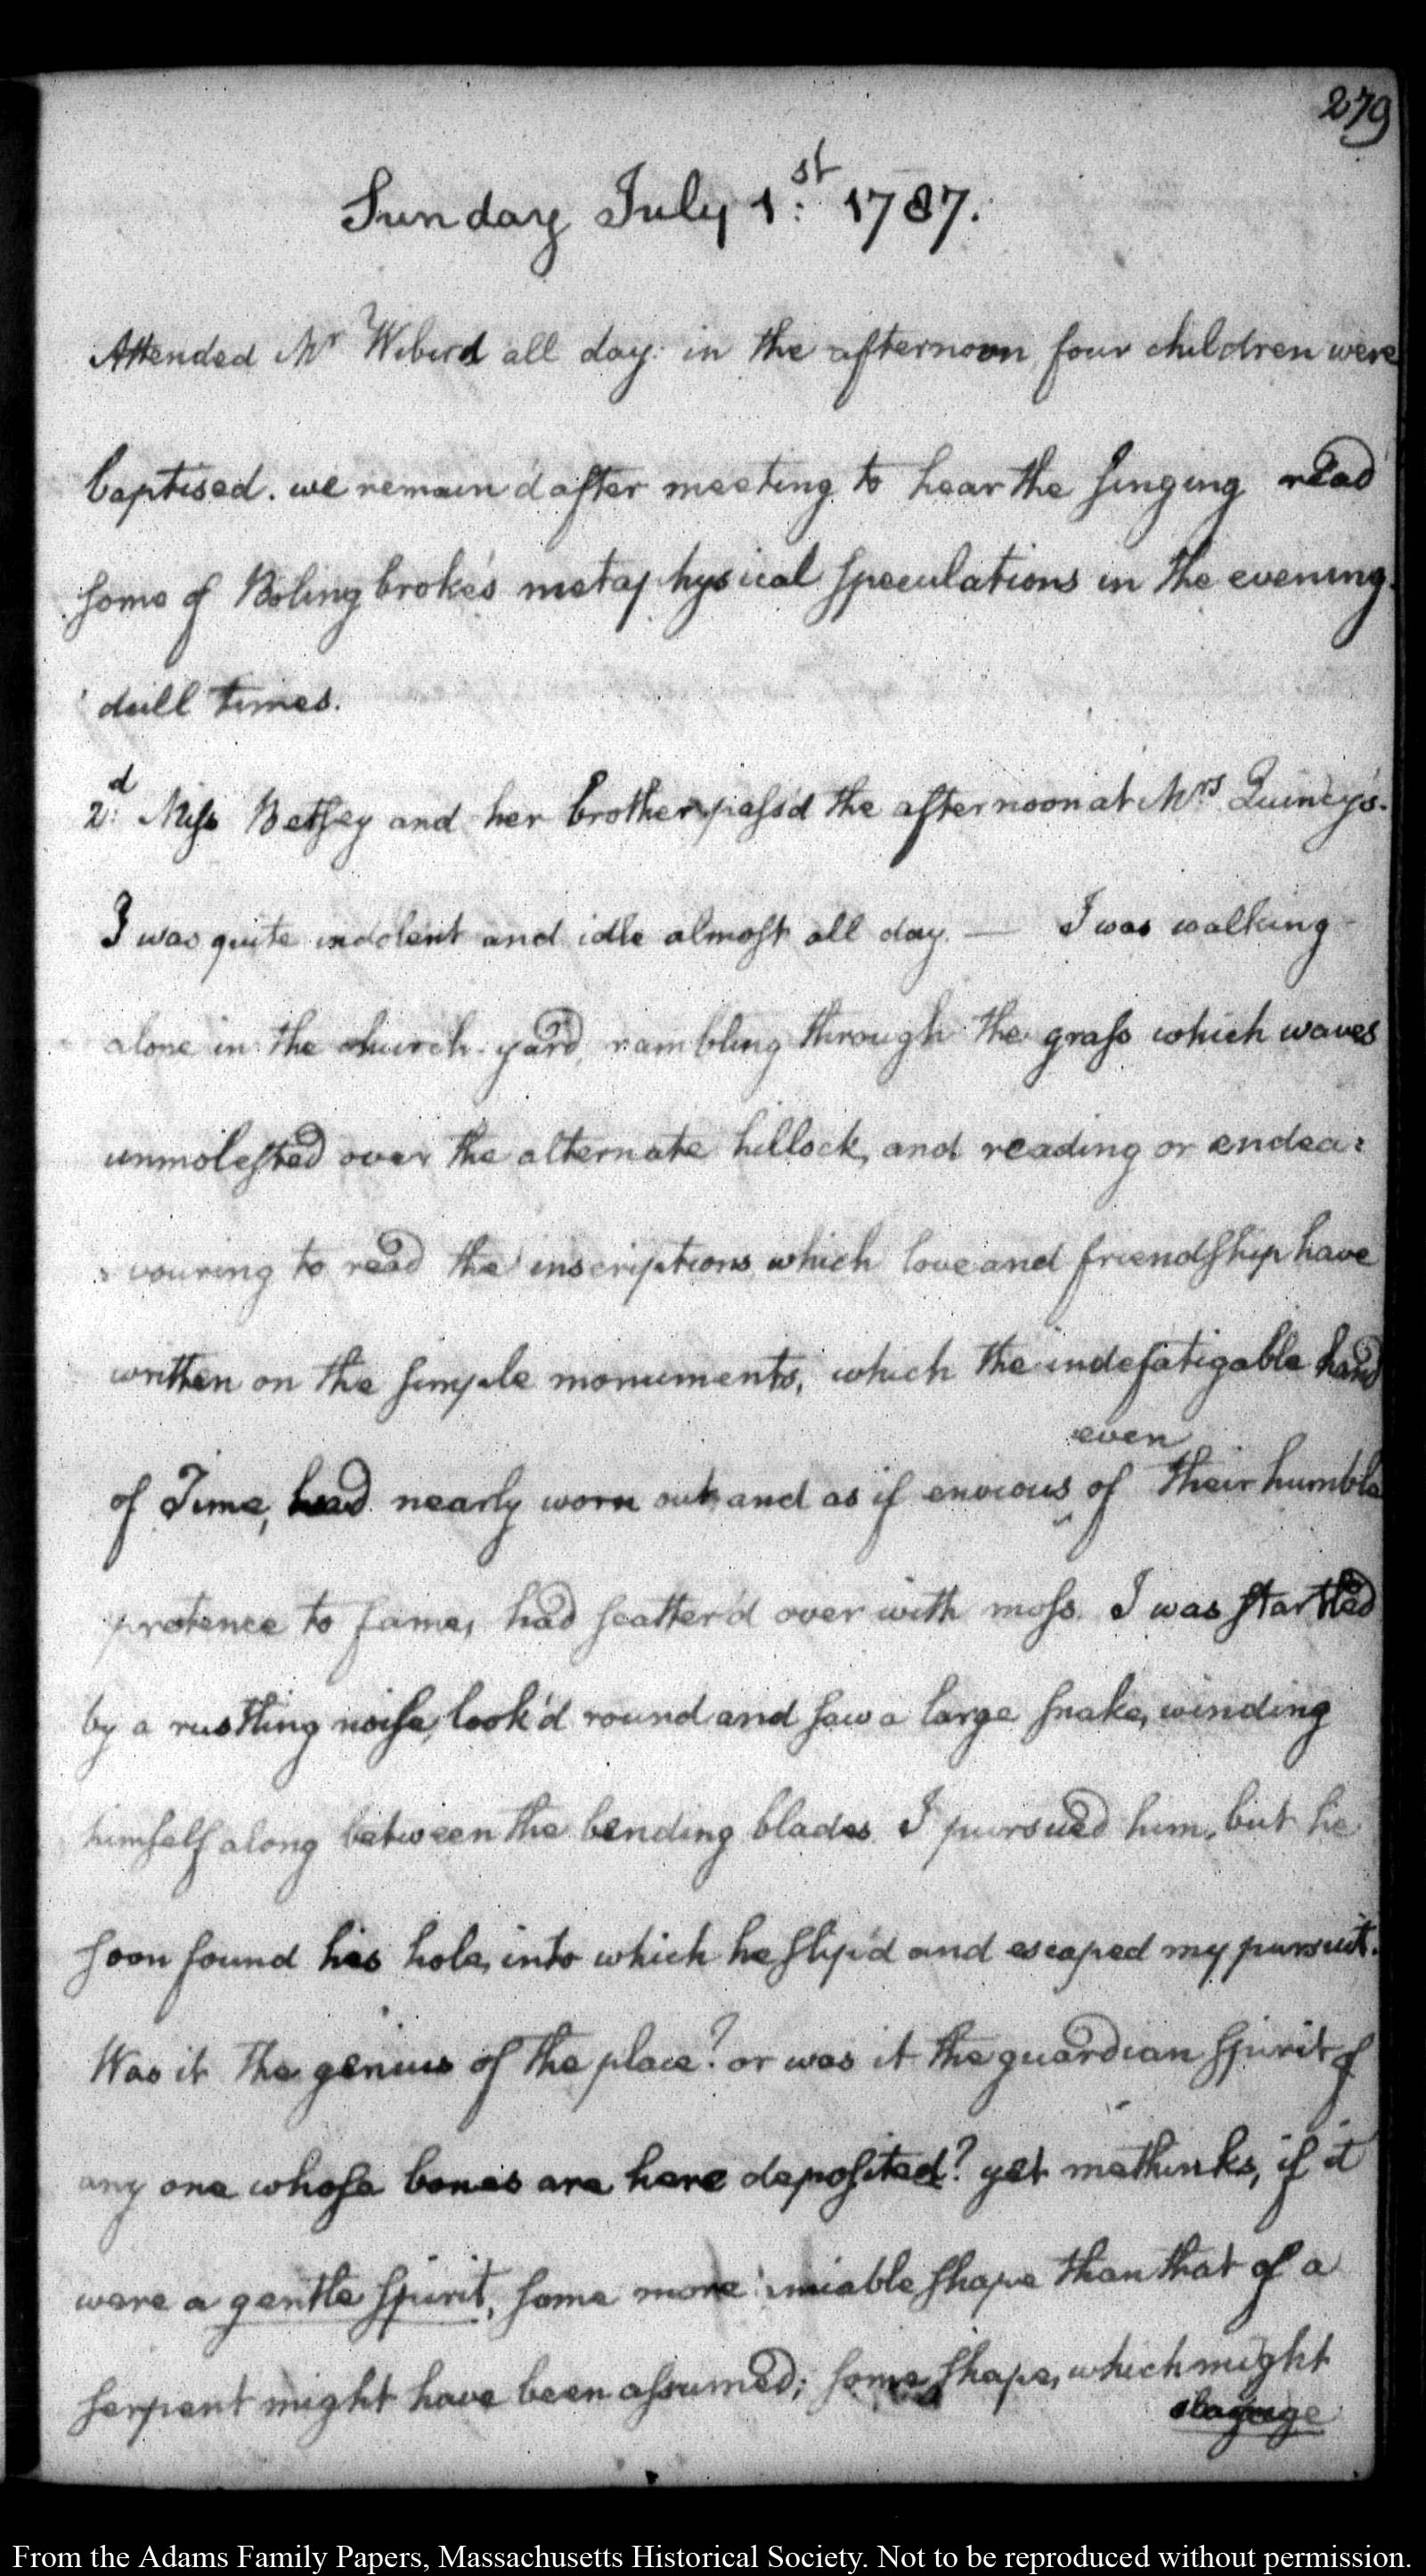 279
Sunday July 1st: 1787.
Attended Mr Wibird all day: in the afternoon four children were
baptised. we remain'd after meeting to hear the singing read
some of Bolingbroke's metaphysical speculations in the evening.
dull times.
2d: Miss Betsey and her brother pass'd the afternoon at Mrs Quincy's.
I was quite indolent and idle almost all day. — I was walking
alone in the church-yard, rambling through the grass which waves
unmolested over the alternate hillock, and reading or endea:
:vouring to read the inscriptions which love and friendship have
written on the simple monuments, which the indefatigable hand
even
of Time, had nearly worn out, and as if envious ^ of their humble
pretence to fame, had scatter'd over with moss. I was startled
by a rustling noise, look'd round and saw a large snake, winding
himself along between the bending blades. I pursued him, but he
soon found his hole, into which he slip'd and escaped my pursuit.
Was it the genius of the place? or was it the guardian spirit of
any one whose bones are here deposited? yet methinks, if it
were a gentle spirit, some more amiable shape than that of a
serpent might have been assumed; some shape, which might
From the Adams Family Papers, Massachusetts Historical Society. Not to be reproduced without permission.